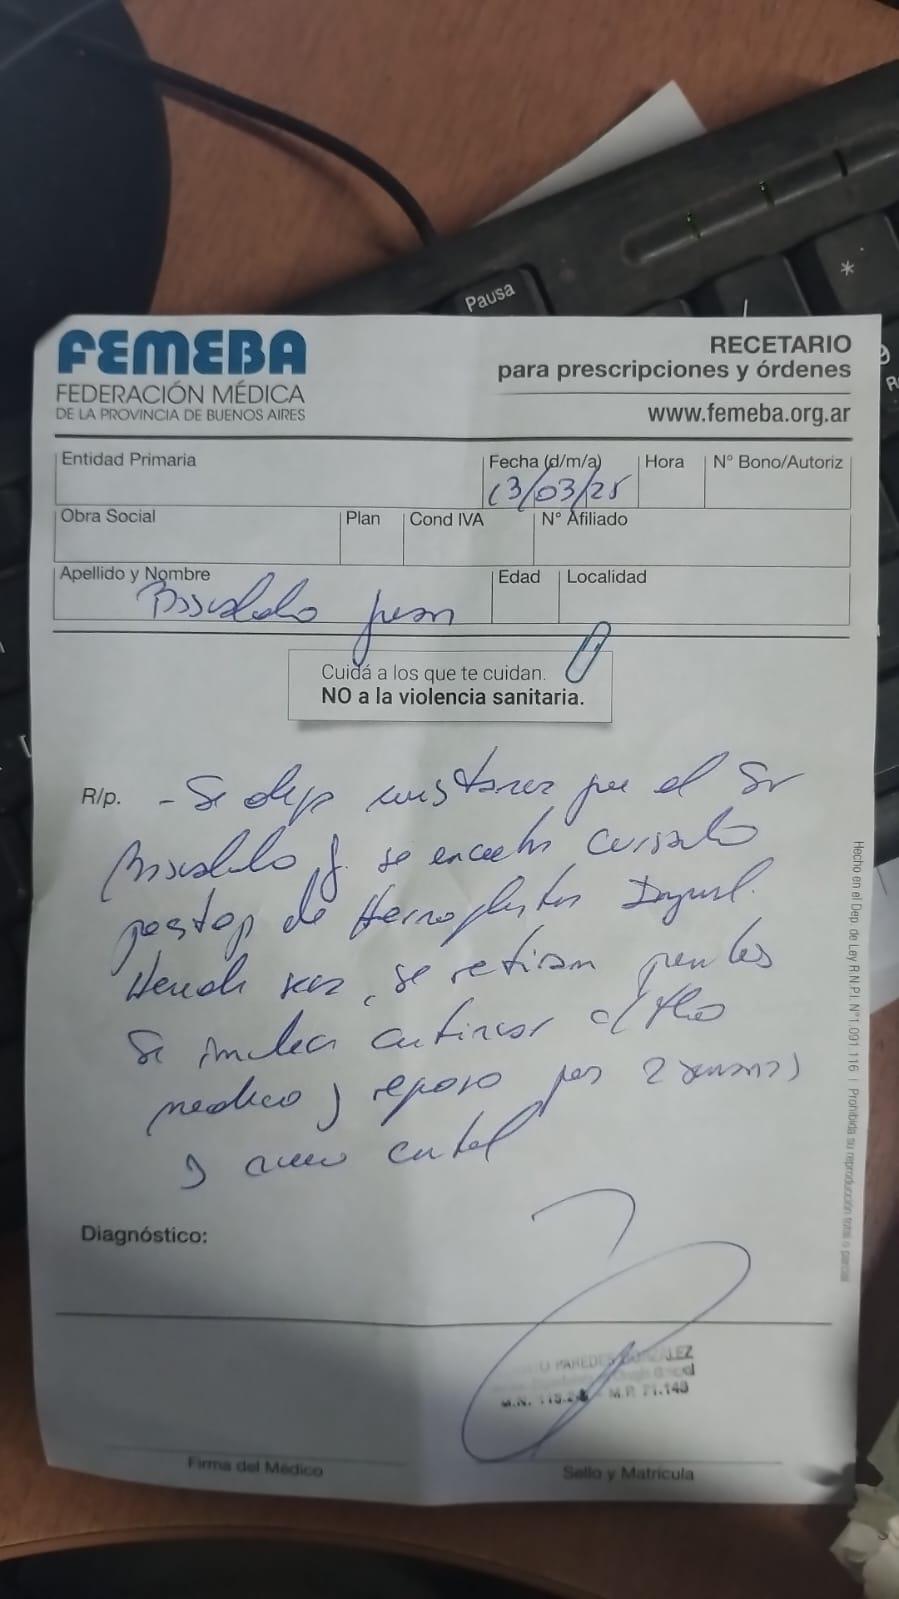 Pausa
*
FEMEBA
FEDERACIÓN MÉDICA
DE LA PROVINCIA DE BUENOS AIRES
RECETARIO
para prescripciones y órdenes
www.femeba.org.ar
Entidad Primaria
Fecha (d/m/a)
Hora
N° Bono/Autoriz
13/03/25
Obra Social
Plan
Cond IVA
N° Afiliado
Apellido y Nombre
Edad
Localidad
Juan
Cuidá a los que te cuidan.
NO a la violencia sanitaria.
R/p. - Se deja constancia que el Sr
J. se encuentra cursando
postop de Hernioplastia Inguinal.
Herida seca, se retiran puntos
Se indica continuar c/ tto
medico y reposo por 2 semanas
y nuevo control
Diagnóstico:
PAREDES GONZALEZ
M.P. 71.143
Firma del Médico
Sello y Matrícula
Hecho en el Dep. de Ley R.N.P.I. N°1.091.116 | Prohibida su reproducción total o parcial